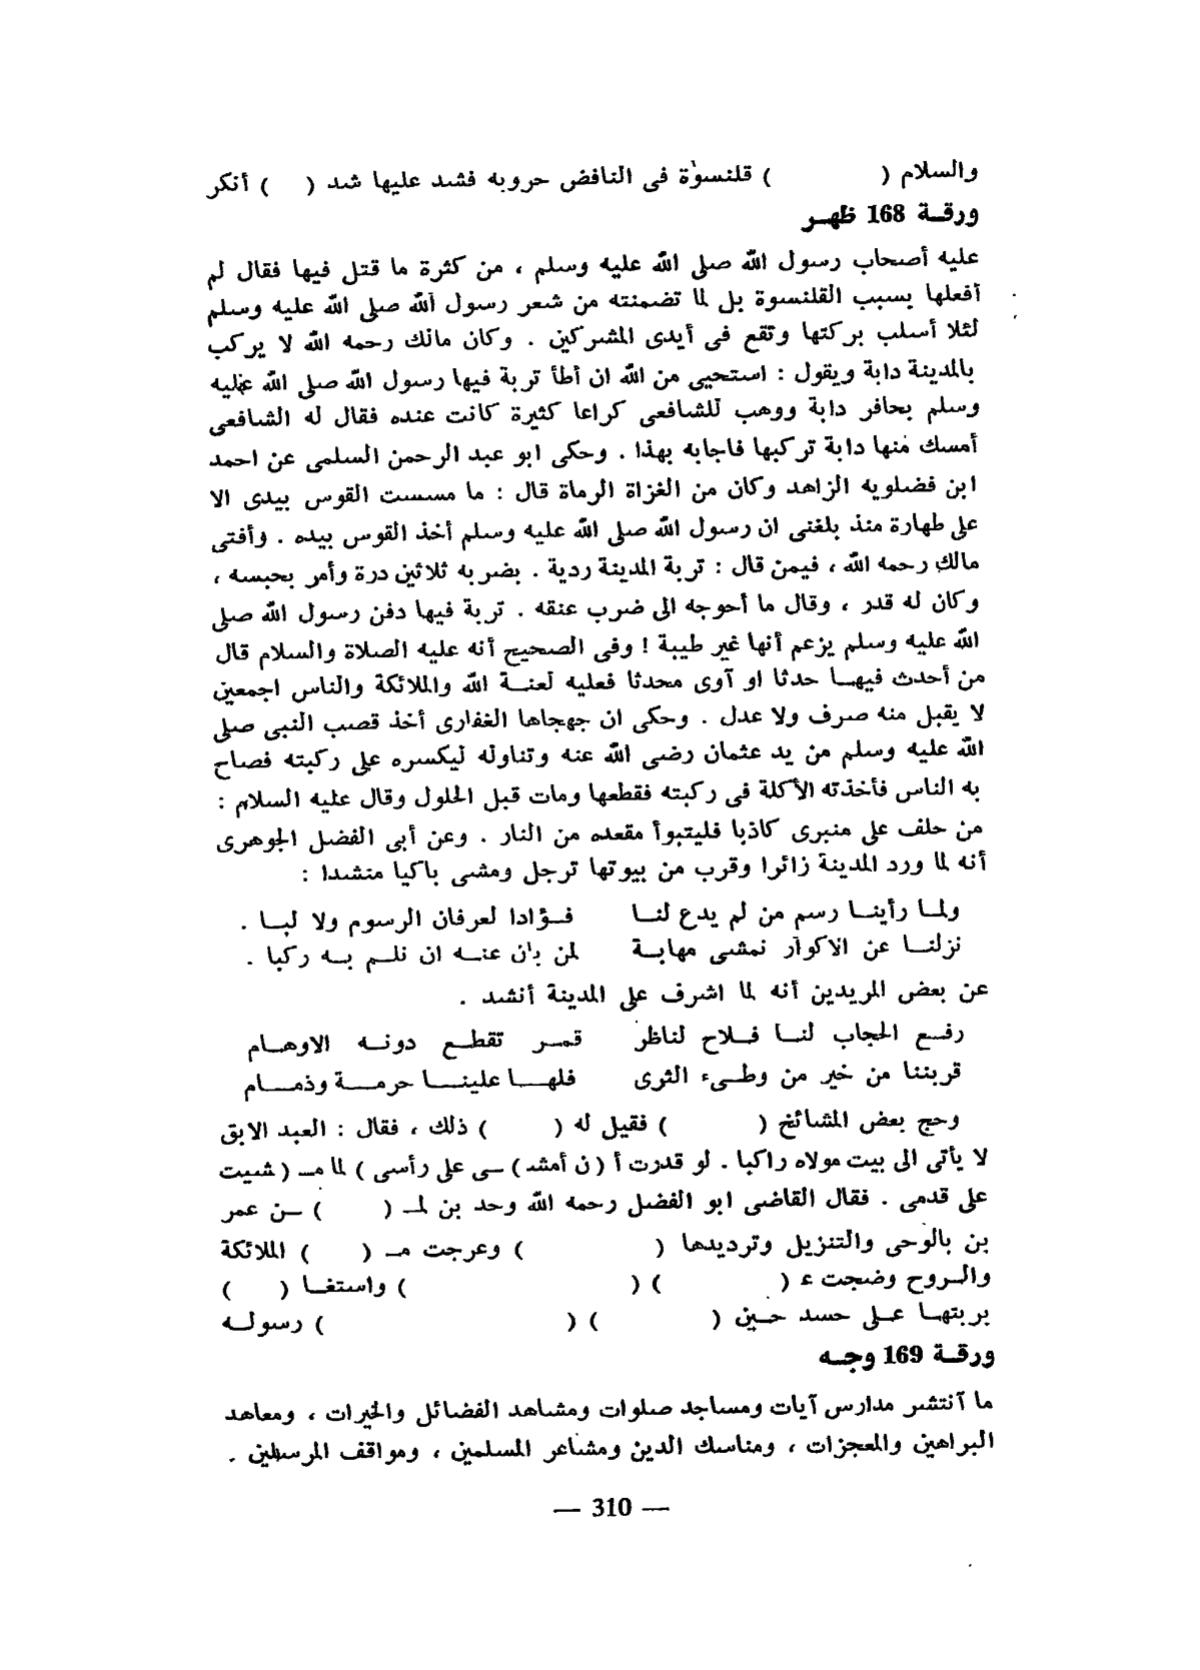 والسلام (          ) قلنسوة فى النافض حروبه فشد عليها شد (    ) أنكر
ورقـة 168 ظهـر
عليه أصحاب رسول الله صلى الله عليه وسلم ، من كثرة ما قتل فيها فقال لم
أفعلها بسبب القلنسوة بل لما تضمنته من شعر رسول الله صلى الله عليه وسلم
لئلا أسلب بركتها وتقع فى أيدى المشركين . وكان مالك رحمه الله لا يركب
بالمدينة دابة ويقول : استحيى من الله ان أطأ تربة فيها رسول الله صلى الله عليه
وسلم بحافر دابة ووهب للشافعى كراعا كثيرة كانت عنده فقال له الشافعى
أمسك منها دابة تركبها فاجابه بهذا . وحكى ابو عبد الرحمن السلمى عن احمد
ابن فضلويه الزاهد وكان من الغزاة الرماة قال : ما مسست القوس بيدى الا
على طهارة منذ بلغنى ان رسول الله صلى الله عليه وسلم أخذ القوس بيده . وأفتى
مالك رحمه الله ، فيمن قال : تربة المدينة ردية . بضربه ثلاثين درة وأمر بحبسه ،
وكان له قدر ، وقال ما أحوجه الى ضرب عنقه . تربة فيها دفن رسول الله صلى
الله عليه وسلم يزعم أنها غير طيبة ! وفى الصحيح أنه عليه الصلاة والسلام قال
من أحدث فيهـا حدثا او آوى محدثا فعليه لعنـة الله والملائكة والناس اجمعين
لا يقبل منه صرف ولا عدل . وحكى ان جهجاها الغفارى أخذ قصب النبى صلى
الله عليه وسلم من يد عثمان رضى الله عنه وتناوله ليكسره على ركبته فصاح
به الناس فأخذته الأكلة فى ركبته فقطعها ومات قبل الحلول وقال عليه السلام :
من حلف على منبرى كاذبا فليتبوأ مقعده من النار . وعن أبى الفضل الجوهرى
أنه لما ورد المدينة زائرا وقرب من بيوتها ترجل ومشى باكيا منشدا :
ولمـا رأينـا رسم من لم يدع لنـا     فـؤادا لعرفان الرسوم ولا لبـا .
نزلنـا عن الاكوار نمشى مهابـة     لمن بان عنـه ان نلـم بـه ركبا .
عن بعض المريدين أنه لما اشرف على المدينة أنشد .
رفـع الحجاب لنـا فـلاح لناظر     قمـر تقطـع دونـه الاوهـام
قربننا من خير من وطـىء الثرى     فلهـا علينـا حرمـة وذمـام
وحج بعض المشائخ (        ) فقيل له (      ) ذلك ، فقال : العبد الابق
لا يأتى الى بيت مولاه راكبا . لو قدرت أ ( ن أمشد ) ـى على رأسى ) لما مـ ( شييت
على قدمى . فقال القاضى ابو الفضل رحمه الله وحد بن لمـ (      ) ـن عمر
بن بالوحى والتنزيل وترديدها (            ) وعرجت مـ (    ) الملائكة
والـروح وضجت ء (          ) (                    ) واستغـا (    )
بربتهـا عـلى حسد حـين (          ) (                    ) رسولـه
ورقـة 169 وجـه
ما آنتشر مدارس آيات ومساجد صلوات ومشاهد الفضائل والخيرات ، ومعاهد
البراهين والمعجزات ، ومناسك الدين ومشاعر المسلمين ، ومواقف المرسلين .
— 310 —